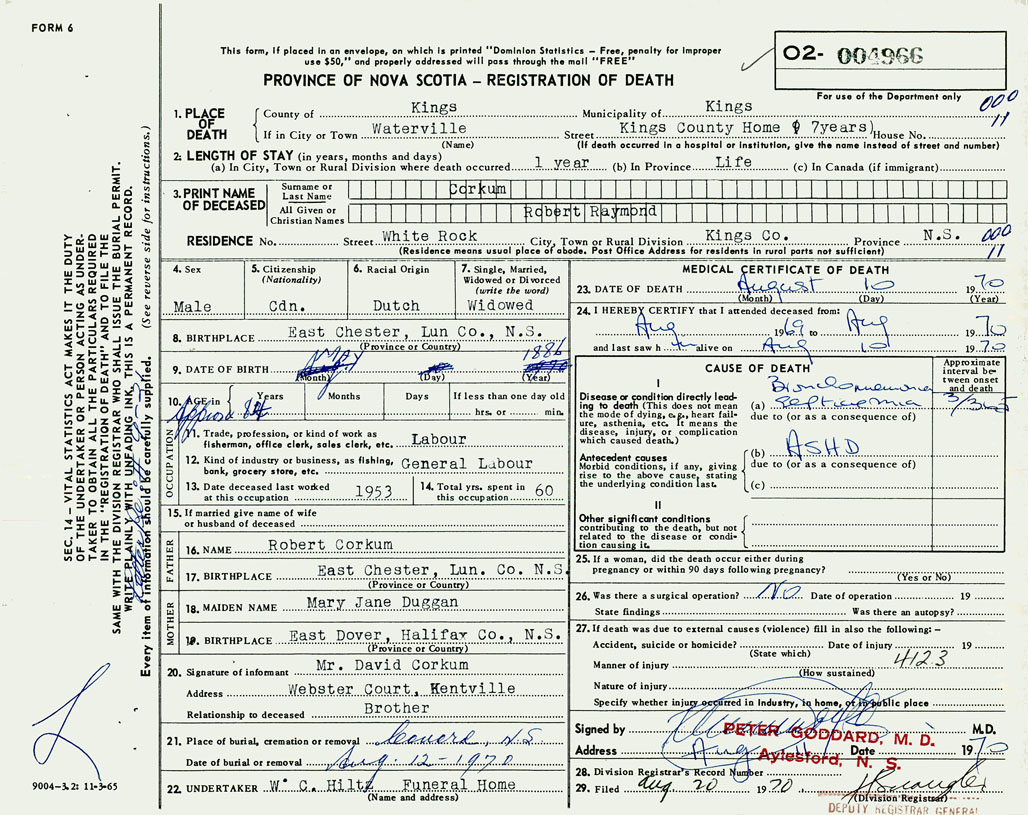 FORM 6
This form, if placed in an envelope, on which is printed "Dominion Statistics – Free, penalty for improper
use $50," and properly addressed will pass through the mail "FREE"
PROVINCE OF NOVA SCOTIA – REGISTRATION OF DEATH
02- 004966
For use of the Department only
000
11
1. PLACE OF DEATH
County of Kings Municipality of Kings
If in City or Town Waterville Street Kings County Home 7years) House No.
(Name) (If death occurred in a hospital or institution, give the name instead of street and number)
2. LENGTH OF STAY (in years, months and days)
(a) In City, Town or Rural Division where death occurred 1 year (b) In Province Life (c) In Canada (if immigrant)
3. PRINT NAME OF DECEASED
Surname or Last Name Corkum
All Given or Christian Names Robert Raymond
RESIDENCE No. Street White Rock City, Town or Rural Division Kings Co. Province N.S.
(Residence means usual place of abode. Post Office Address for residents in rural parts not sufficient)
000
11
4. Sex
Male
5. Citizenship
(Nationality)
Cdn.
6. Racial Origin
Dutch
7. Single, Married,
Widowed or Divorced
(write the word)
Widowed
8. BIRTHPLACE East Chester, Lun Co., N.S.
(Province or Country)
9. DATE OF BIRTH May 1886
(Month) (Day) (Year)
10. AGE in Years Months Days If less than one day old
hrs. or min.
Approx 84
OCCUPATION
11. Trade, profession, or kind of work as
fisherman, office clerk, sales clerk, etc. Labour
12. Kind of industry or business, as fishing,
bank, grocery store, etc. General Labour
13. Date deceased last worked
at this occupation 1953
14. Total yrs. spent in
this occupation 60
15. If married give name of wife
or husband of deceased
FATHER
16. NAME Robert Corkum
17. BIRTHPLACE East Chester, Lun. Co. N.S.
(Province or Country)
MOTHER
18. MAIDEN NAME Mary Jane Duggan
19. BIRTHPLACE East Dover, Halifax Co., N.S.
(Province or Country)
20. Signature of informant Mr. David Corkum
Address Webster Court, Kentville
Relationship to deceased Brother
21. Place of burial, cremation or removal N.S.
Date of burial or removal Aug. 12-1970
22. UNDERTAKER W. C. Hiltz Funeral Home
(Name and address)
MEDICAL CERTIFICATE OF DEATH
23. DATE OF DEATH August 10 1970
(Month) (Day) (Year)
24. I HEREBY CERTIFY that I attended deceased from:
Aug 1969 to Aug 1970
and last saw him alive on Aug 10 1970
CAUSE OF DEATH
Approximate
interval be-
tween onset
and death
I
Disease or condition directly lead-
ing to death (This does not mean
the mode of dying, e.g., heart fail-
ure, asthenia, etc. It means the
disease, injury, or complication
which caused death.)
Bronchopneumonia
(a) septicemia
due to (or as a consequence of)
Antecedent causes
Morbid conditions, if any, giving
rise to the above cause, stating
the underlying condition last.
(b) ASHD
due to (or as a consequence of)
(c)
II
Other significant conditions
contributing to the death, but not
related to the disease or condi-
tion causing it.
25. If a woman, did the death occur either during
pregnancy or within 90 days following pregnancy?
(Yes or No)
26. Was there a surgical operation? No Date of operation 19
State findings Was there an autopsy?
27. If death was due to external causes (violence) fill in also the following: –
Accident, suicide or homicide? Date of injury 19
(State which)
4123
Manner of injury
(How sustained)
Nature of injury
Specify whether injury occurred in Industry, in home, or in public place
Signed by PETER GODDARD, M. D. M.D.
Address Aug Date 1970
Aylesford, N. S.
28. Division Registrar's Record Number
29. Filed Aug 20 1970
(Division Registrar)
DEPUTY REGISTRAR GENERAL
SEC. 14 – VITAL STATISTICS ACT MAKES IT THE DUTY
OF THE UNDERTAKER OR PERSON ACTING AS UNDER-
TAKER TO OBTAIN ALL THE PARTICULARS REQUIRED
IN THE "REGISTRATION OF DEATH" AND TO FILE THE
SAME WITH THE DIVISION REGISTRAR WHO SHALL ISSUE THE BURIAL PERMIT.
WRITE PLAINLY WITH UNFADING INK, THIS IS A PERMANENT RECORD.
Every item of information should be carefully supplied. (See reverse side for instructions.)
9004-3.2: 11-3-65